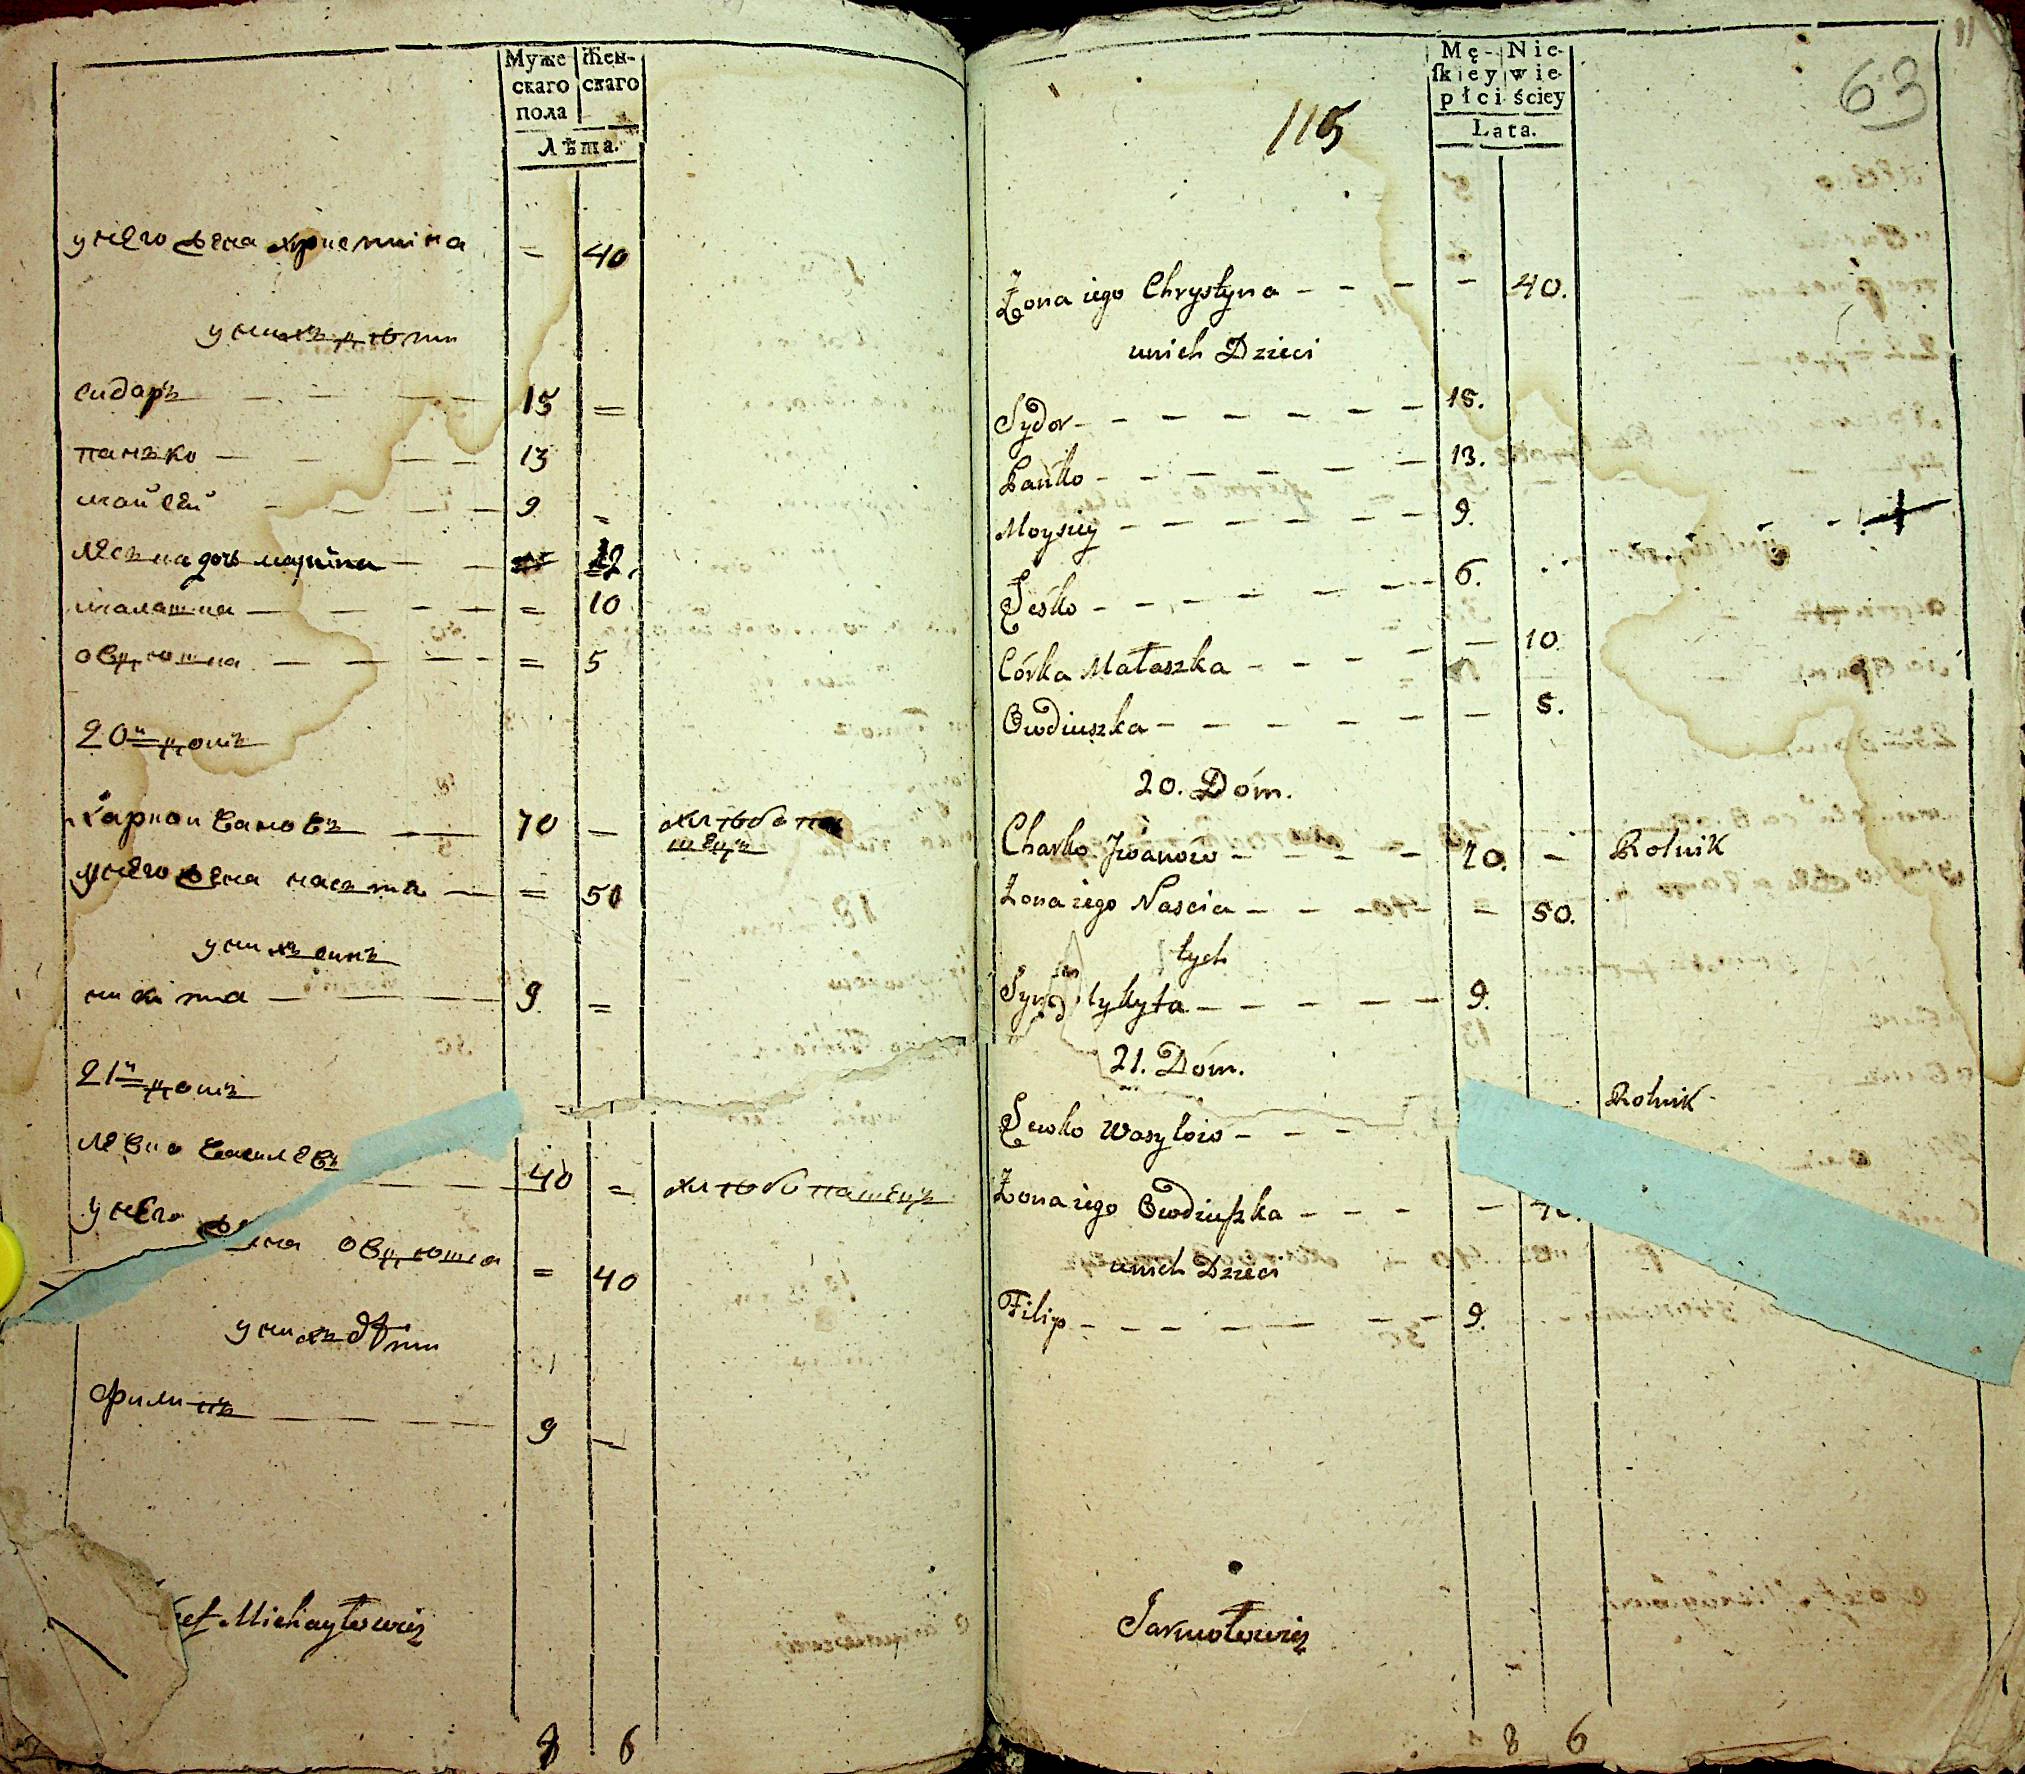 Муже Жен-
скаго скаго
пола
Лѣта.
у него жена христина – 40
у нихъ дѣти
сидаръ – – – – 15 =
панько – – – – 13
майсѣй – – – – 9 =
дочь марина – – 12.
малашка – – – – = 10
овдюшка – – – – = 5
20й домъ
Харко ивановъ – – 70 – хлѣбопа
шецъ
у него жена настя – = 50
у нихъ синъ
никита – – – – 9 =
21й домъ
левко василевъ – 40 = хлѣбопашецъ
у него жена овдюшка = 40
у нихъ дѣти
филипъ – – – – 9 –
Michayłowicz
8 6
11
63
115
Mę- Nie-
ſkiey wie-
płci ściey
Lata.
Żona iego Chrystyna – – – – 40.
unich Dzieci
Sydor – – – – – – 15.
Pańko – – – – – – 13.
Moysiey – – – – – – 9.
Leśko – – – – – – 6.
Córka Małaszka – – – – – 10
Owdiuszka – – – – – – 5.
20. Dóm.
Charko Jwanow – – – – 70. – Rolnik
Żona iego Naścia – – – – 50.
tych
Syn Mykyta – – – – – 9.
21. Dóm.
Lewko Wasylow – – – Rolnik
Żona iego Owdiuſzka – – – –
unich Dzieci
Filip – – – – – – 9.
Jarmołowicz
8 6